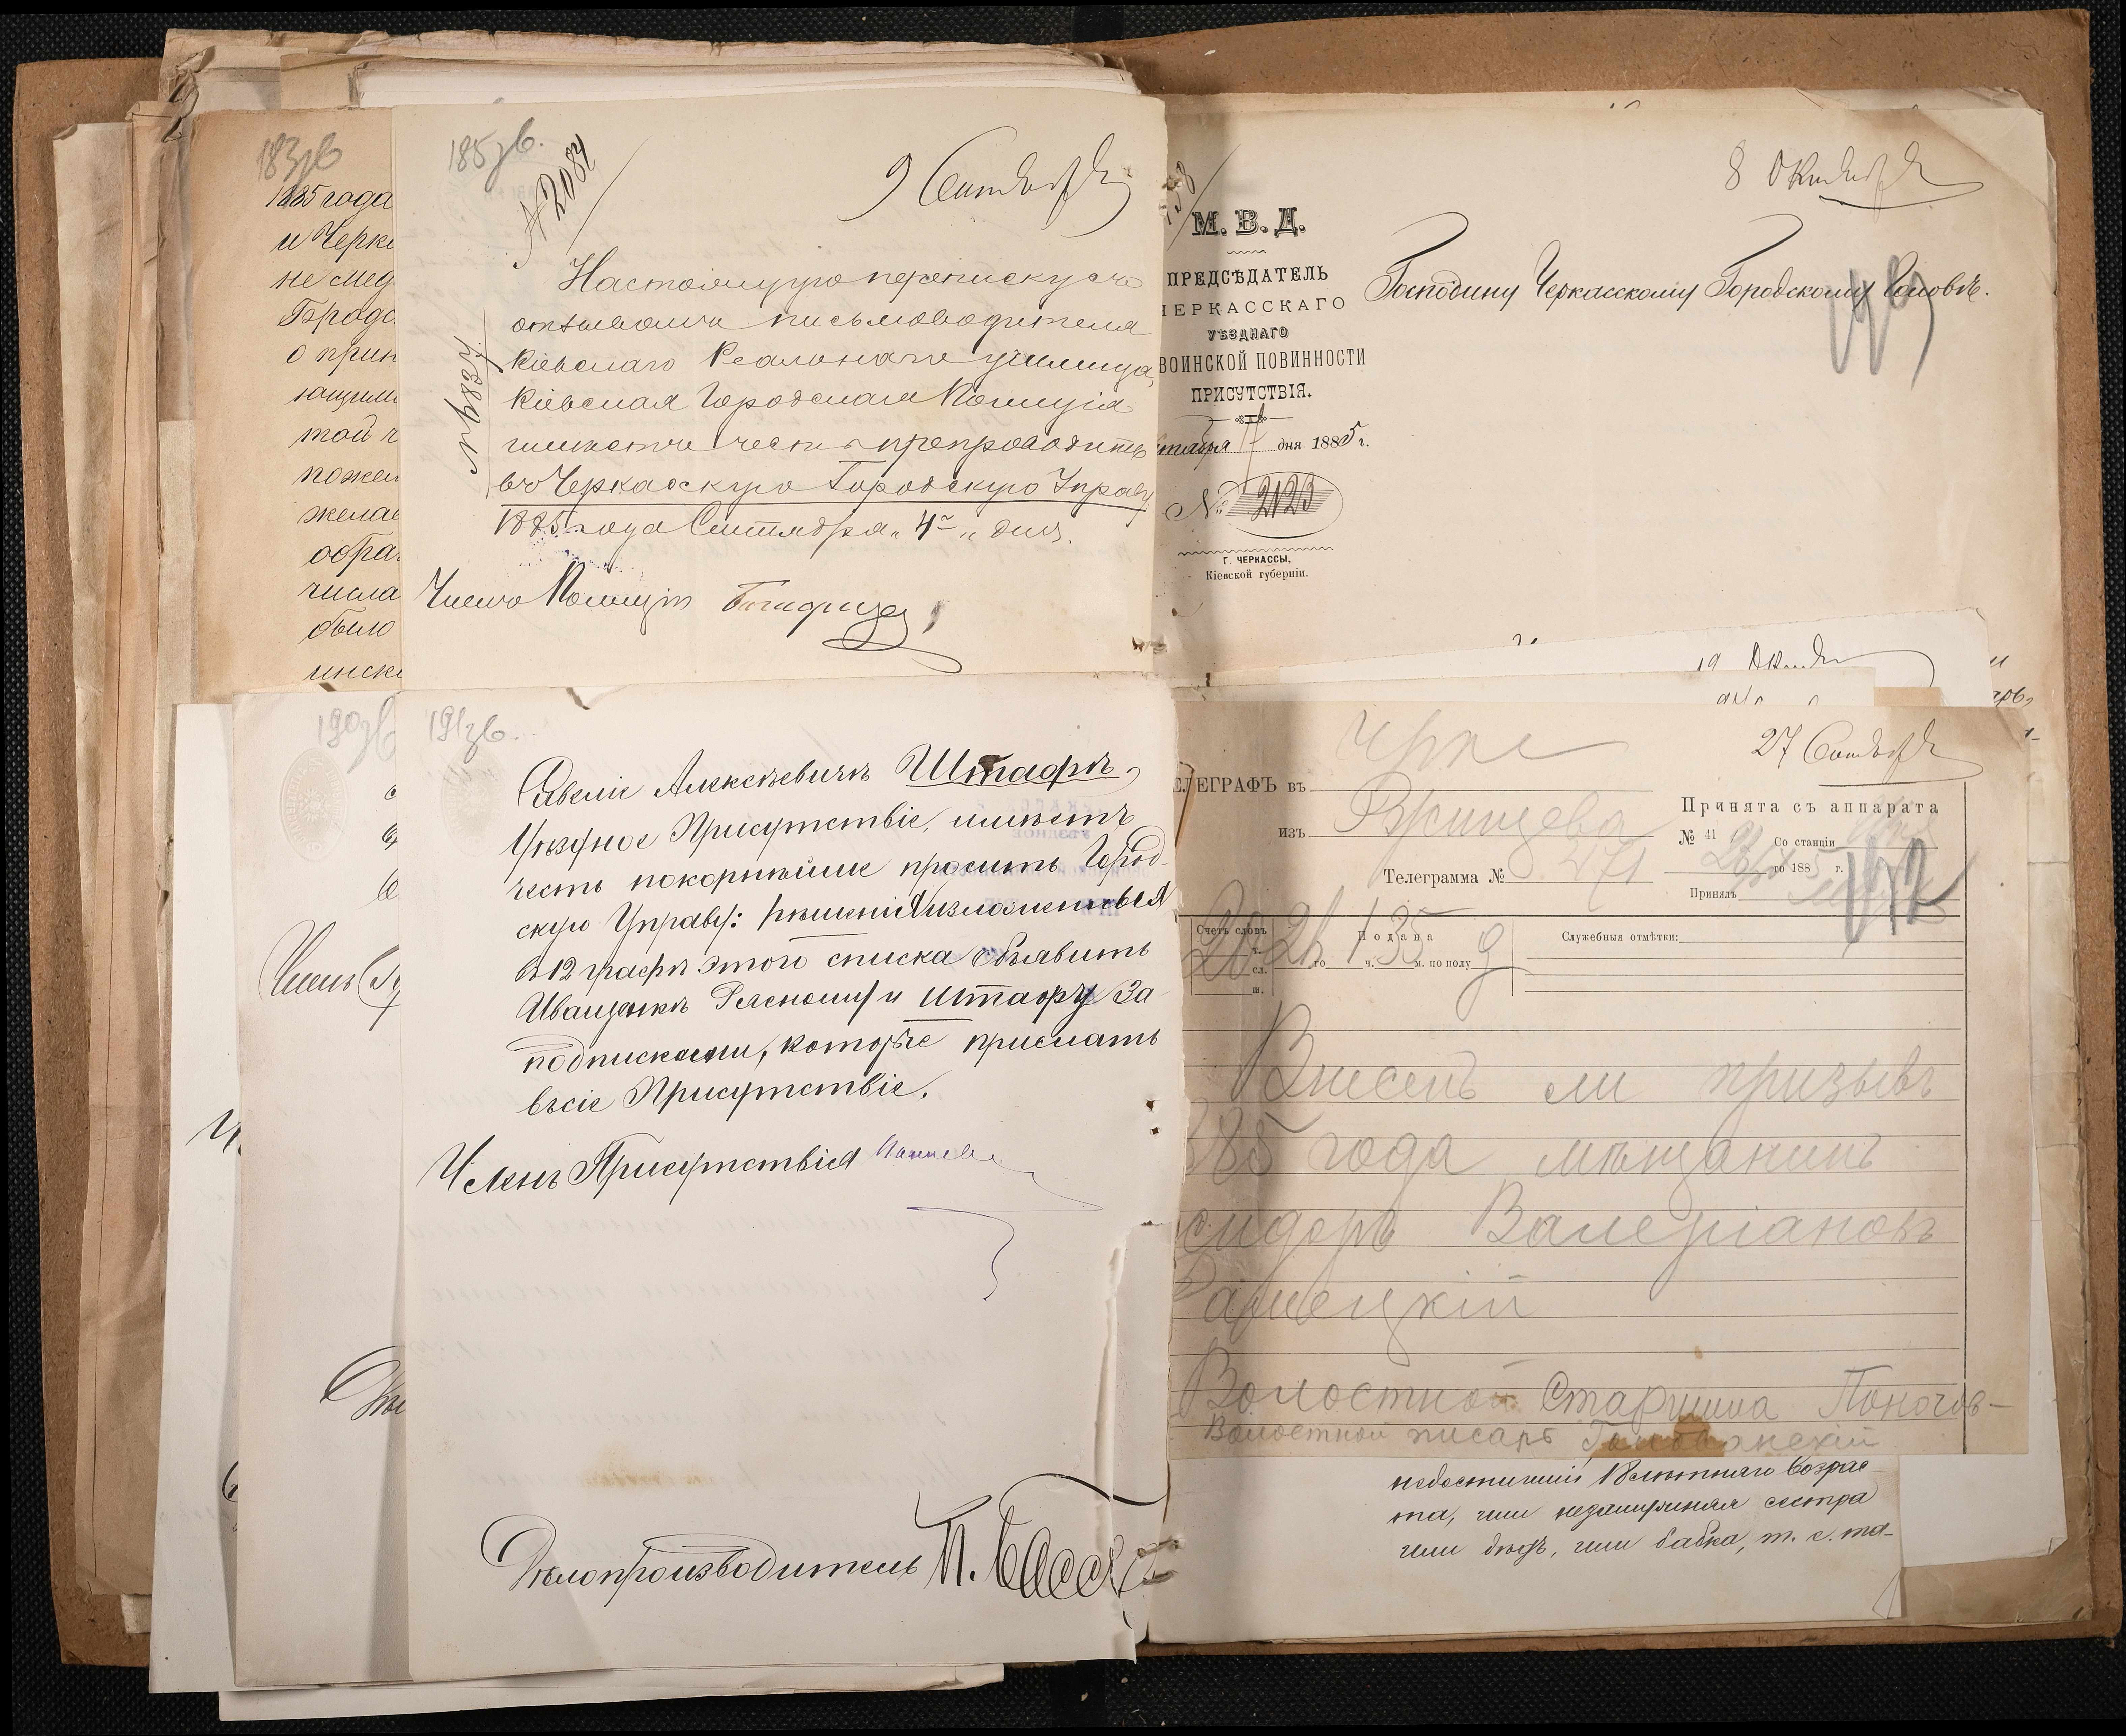 183зв
1885 года
и Черка
не мед
Городс
о прин
ющими
той ч
пожел
желае
обра
числа
было
инска
185зв.
№ 2084
9 Сентября
Настоящую переписку съ
отзывомъ письмоводителя
Кіевскаго Реальнаго училища,
Кіевская Городская Полиція
имѣетъ честь препроводить
въ Черкасскую Городскую Управу
1885 года Сентября „4" дня.
Членъ Полиціи
8 Октября
М. В. Д.
ПРЕДСѢДАТЕЛЬ
ЧЕРКАССКАГО
УѢЗДНАГО
ВОИНСКОЙ ПОВИННОСТИ
ПРИСУТСТВІЯ.
дня 1885 г.
№ 2123
Г. ЧЕРКАССЫ,
Кіевской губерніи.
Господину Черкасскому Городскому Головѣ.
190зв
Членъ
191зв.
Савеліе Алексѣевичъ Штафъ,
Уѣздное Присутствіе, имѣетъ
честь покорнѣйше просить Город-
скую Управу: рѣшенія изложенныя
въ 12 графѣ этого списка объявить
Иващенкѣ Рясному и Штафу за
подписками, которые прислать
въ сіе Присутствіе.
Членъ Присутствія
Дѣлопроизводитель П.
19
27 Сентября
ЕЛЕГРАФЪ въ
изъ Ржищева
Принята съ аппарата
№ 41
Со станціи
го 188 5 г.
Телеграмма № 271
Принялъ
192
Счетъ словъ
ч.
сл.
ш.
20
Подана
26 го 1 ч. 35 м. по полу д
Служебныя отмѣтки:
Внесенъ ли призывъ
885 года мѣщанинъ
сидоръ Валеріановъ
Волостной Старшина
Волостной писарь
недостигшій 18 лѣтняго возрас-
та, или незамужняя сестра
или дѣдъ, или бабка, т. е. та-